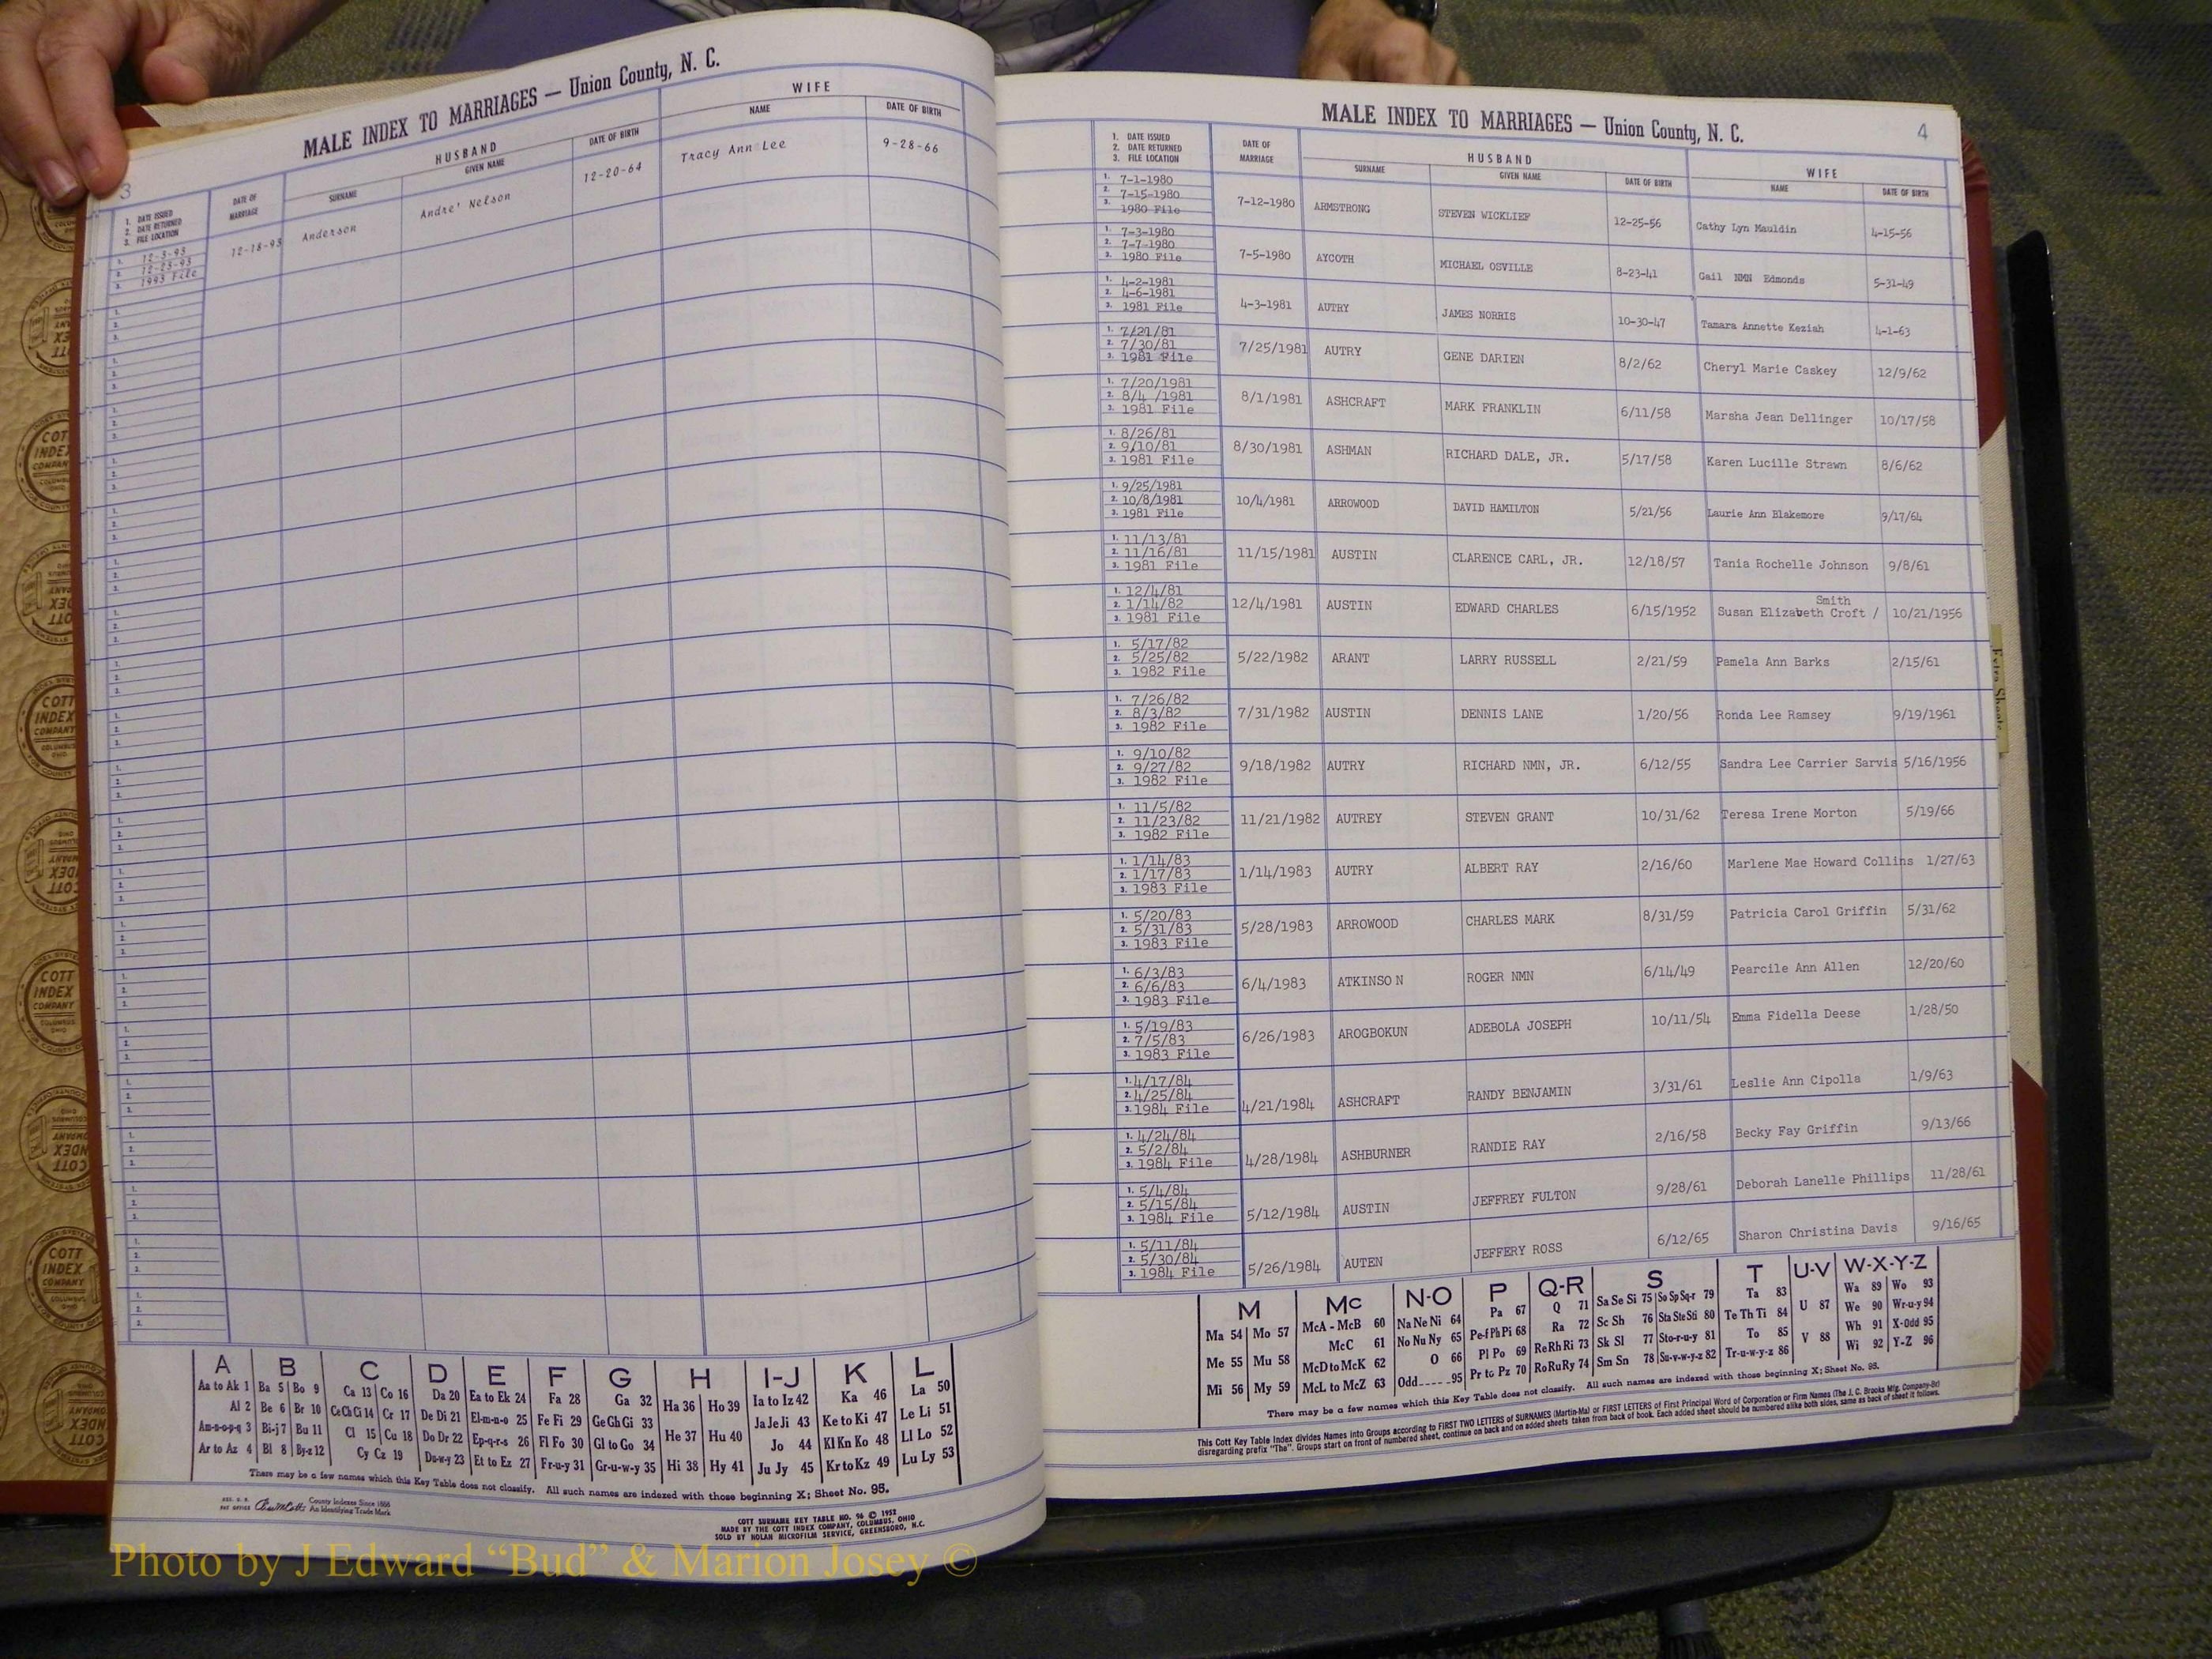 MALE INDEX TO MARRIAGES — Union County, N. C.
3
1. DATE ISSUED
2. DATE RETURNED
3. FILE LOCATION
DATE OF MARRIAGE
HUSBAND
SURNAME GIVEN NAME DATE OF BIRTH
WIFE
NAME DATE OF BIRTH
1. 12-3-93
2. 12-23-93
3. 1993 File
12-18-93 Anderson Andre' Nelson 12-20-64 Tracy Ann Lee 9-28-66
A B C D E F G H I-J K L
Aa to Ak 1 Ba 5 Bo 9 Ca 13 Co 16 Da 20 Ea to Ek 24 Fa 28 Ga 32 Ha 36 Ho 39 Ia to Iz 42 Ka 46 La 50
Al 2 Be 6 Br 10 Ce Ch Ci 14 Cr 17 De Di 21 El-m-n-o 25 Fe Fi 29 Ge Gh Gi 33 Ja Je Ji 43 Ke to Ki 47 Le Li 51
Am-n-o-p-q 3 Bi-j 7 Bu 11 Cl 15 Cu 18 Do Dr 22 Ep-q-r-s 26 Fl Fo 30 Gl to Go 34 He 37 Hu 40 Jo 44 Kl Kn Ko 48 Ll Lo 52
Ar to Az 4 Bl 8 By-z 12 Cy Cz 19 Du-w-y 23 Et to Ez 27 Fr-u-y 31 Gr-u-w-y 35 Hi 38 Hy 41 Ju Jy 45 Kr to Kz 49 Lu Ly 53
There may be a few names which this Key Table does not classify. All such names are indexed with those beginning X; Sheet No. 95.
County Indexes Since 1888
An Identifying Trade Mark
COTT SURNAME KEY TABLE NO. 96 © 1952
MADE BY THE COTT INDEX COMPANY, COLUMBUS, OHIO
SOLD BY NOLAN MICROFILM SERVICE, GREENSBORO, N.C.
MALE INDEX TO MARRIAGES — Union County, N. C.
4
1. DATE ISSUED
2. DATE RETURNED
3. FILE LOCATION
DATE OF MARRIAGE
HUSBAND
SURNAME GIVEN NAME DATE OF BIRTH
WIFE
NAME DATE OF BIRTH
1. 7-1-1980
2. 7-15-1980
3. 1980 File
7-12-1980 ARMSTRONG STEVEN WICKLIEF 12-25-56 Cathy Lyn Mauldin 4-15-56
1. 7-3-1980
2. 7-7-1980
3. 1980 File
7-5-1980 AYCOTH MICHAEL OSVILLE 8-23-41 Gail NMN Edmonds 5-31-49
1. 4-2-1981
2. 4-6-1981
3. 1981 File
4-3-1981 AUTRY JAMES NORRIS 10-30-47 Tamara Annette Keziah 4-1-63
1. 7/21/81
2. 7/30/81
3. 1981 File
7/25/1981 AUTRY GENE DARIEN 8/2/62 Cheryl Marie Caskey 12/9/62
1. 7/20/1981
2. 8/4 /1981
3. 1981 File
8/1/1981 ASHCRAFT MARK FRANKLIN 6/11/58 Marsha Jean Dellinger 10/17/58
1. 8/26/81
2. 9/10/81
3. 1981 File
8/30/1981 ASHMAN RICHARD DALE, JR. 5/17/58 Karen Lucille Strawn 8/6/62
1. 9/25/1981
2. 10/8/1981
3. 1981 File
10/4/1981 ARROWOOD DAVID HAMILTON 5/21/56 Laurie Ann Blakemore 9/17/64
1. 11/13/81
2. 11/16/81
3. 1981 File
11/15/1981 AUSTIN CLARENCE CARL, JR. 12/18/57 Tania Rochelle Johnson 9/8/61
1. 12/4/81
2. 1/14/82
3. 1981 File
Smith
12/4/1981 AUSTIN EDWARD CHARLES 6/15/1952 Susan Elizabeth Croft / 10/21/1956
1. 5/17/82
2. 5/25/82
3. 1982 File
5/22/1982 ARANT LARRY RUSSELL 2/21/59 Pamela Ann Barks 2/15/61
1. 7/26/82
2. 8/3/82
3. 1982 File
7/31/1982 AUSTIN DENNIS LANE 1/20/56 Ronda Lee Ramsey 9/19/1961
1. 9/10/82
2. 9/27/82
3. 1982 File
9/18/1982 AUTRY RICHARD NMN, JR. 6/12/55 Sandra Lee Carrier Sarvis 5/16/1956
1. 11/5/82
2. 11/23/82
3. 1982 File
11/21/1982 AUTREY STEVEN GRANT 10/31/62 Teresa Irene Morton 5/19/66
1. 1/14/83
2. 1/17/83
3. 1983 File
1/14/1983 AUTRY ALBERT RAY 2/16/60 Marlene Mae Howard Collins 1/27/63
1. 5/20/83
2. 5/31/83
3. 1983 File
5/28/1983 ARROWOOD CHARLES MARK 8/31/59 Patricia Carol Griffin 5/31/62
1. 6/3/83
2. 6/6/83
3. 1983 File
6/4/1983 ATKINSO N ROGER NMN 6/14/49 Pearcile Ann Allen 12/20/60
1. 5/19/83
2. 7/5/83
3. 1983 File
6/26/1983 AROGBOKUN ADEBOLA JOSEPH 10/11/54 Emma Fidella Deese 1/28/50
1. 4/17/84
2. 4/25/84
3. 1984 File
4/21/1984 ASHCRAFT RANDY BENJAMIN 3/31/61 Leslie Ann Cipolla 1/9/63
1. 4/24/84
2. 5/2/84
3. 1984 File
4/28/1984 ASHBURNER RANDIE RAY 2/16/58 Becky Fay Griffin 9/13/66
1. 5/4/84
2. 5/15/84
3. 1984 File
5/12/1984 AUSTIN JEFFREY FULTON 9/28/61 Deborah Lanelle Phillips 11/28/61
1. 5/11/84
2. 5/30/84
3. 1984 File
5/26/1984 AUTEN JEFFERY ROSS 6/12/65 Sharon Christina Davis 9/16/65
M Mc N-O P Q-R S T U-V W-X-Y-Z
Ma 54 Mo 57 McA - McB 60 Na Ne Ni 64 Pa 67 Q 71 Sa Se Si 75 So Sp Sq-r 79 Ta 83 U 87 Wa 89 Wo 93
McC 61 No Nu Ny 65 Pe-f Ph Pi 68 Ra 72 Sc Sh 76 Sta Ste Sti 80 Te Th Ti 84 We 90 Wr-u-y 94
Me 55 Mu 58 McD to McK 62 O 66 Pl Po 69 Re Rh Ri 73 Sk Sl 77 Sto-r-u-y 81 To 85 V 88 Wh 91 X-Odd 95
Mi 56 My 59 McL to McZ 63 Odd 95 Pr to Pz 70 Ro Ru Ry 74 Sm Sn 78 Su-v-w-y-z 82 Tr-u-w-y-z 86 Wi 92 Y-Z 96
There may be a few names which this Key Table does not classify. All such names are indexed with those beginning X; Sheet No. 95.
This Cott Key Table Index divides Names into Groups according to FIRST TWO LETTERS of SURNAMES (Martin-Ma) or FIRST LETTERS of First Principal Word of Corporation or Firm Names (The J. C. Brooks Mfg. Company-Br)
disregarding prefix "The". Groups start on front of numbered sheet, continue on back and on added sheets taken from back of book. Each added sheet should be numbered alike both sides, same as back of sheet it follows.
COTT
INDEX
COMPANY
COLUMBUS
OHIO
Photo by J Edward “Bud” & Marion Josey ©